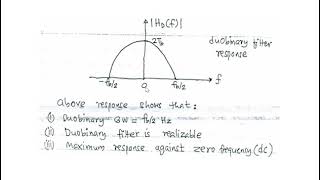 |H_D(f)|
2T_b
duobinary filter
response
-f_b/2 0 f_b/2 f
Above response shows that:
(i) Duobinary BW = f_b/2 Hz
(ii) Duobinary filter is realizable
(iii) Maximum response against zero frequency (dc)